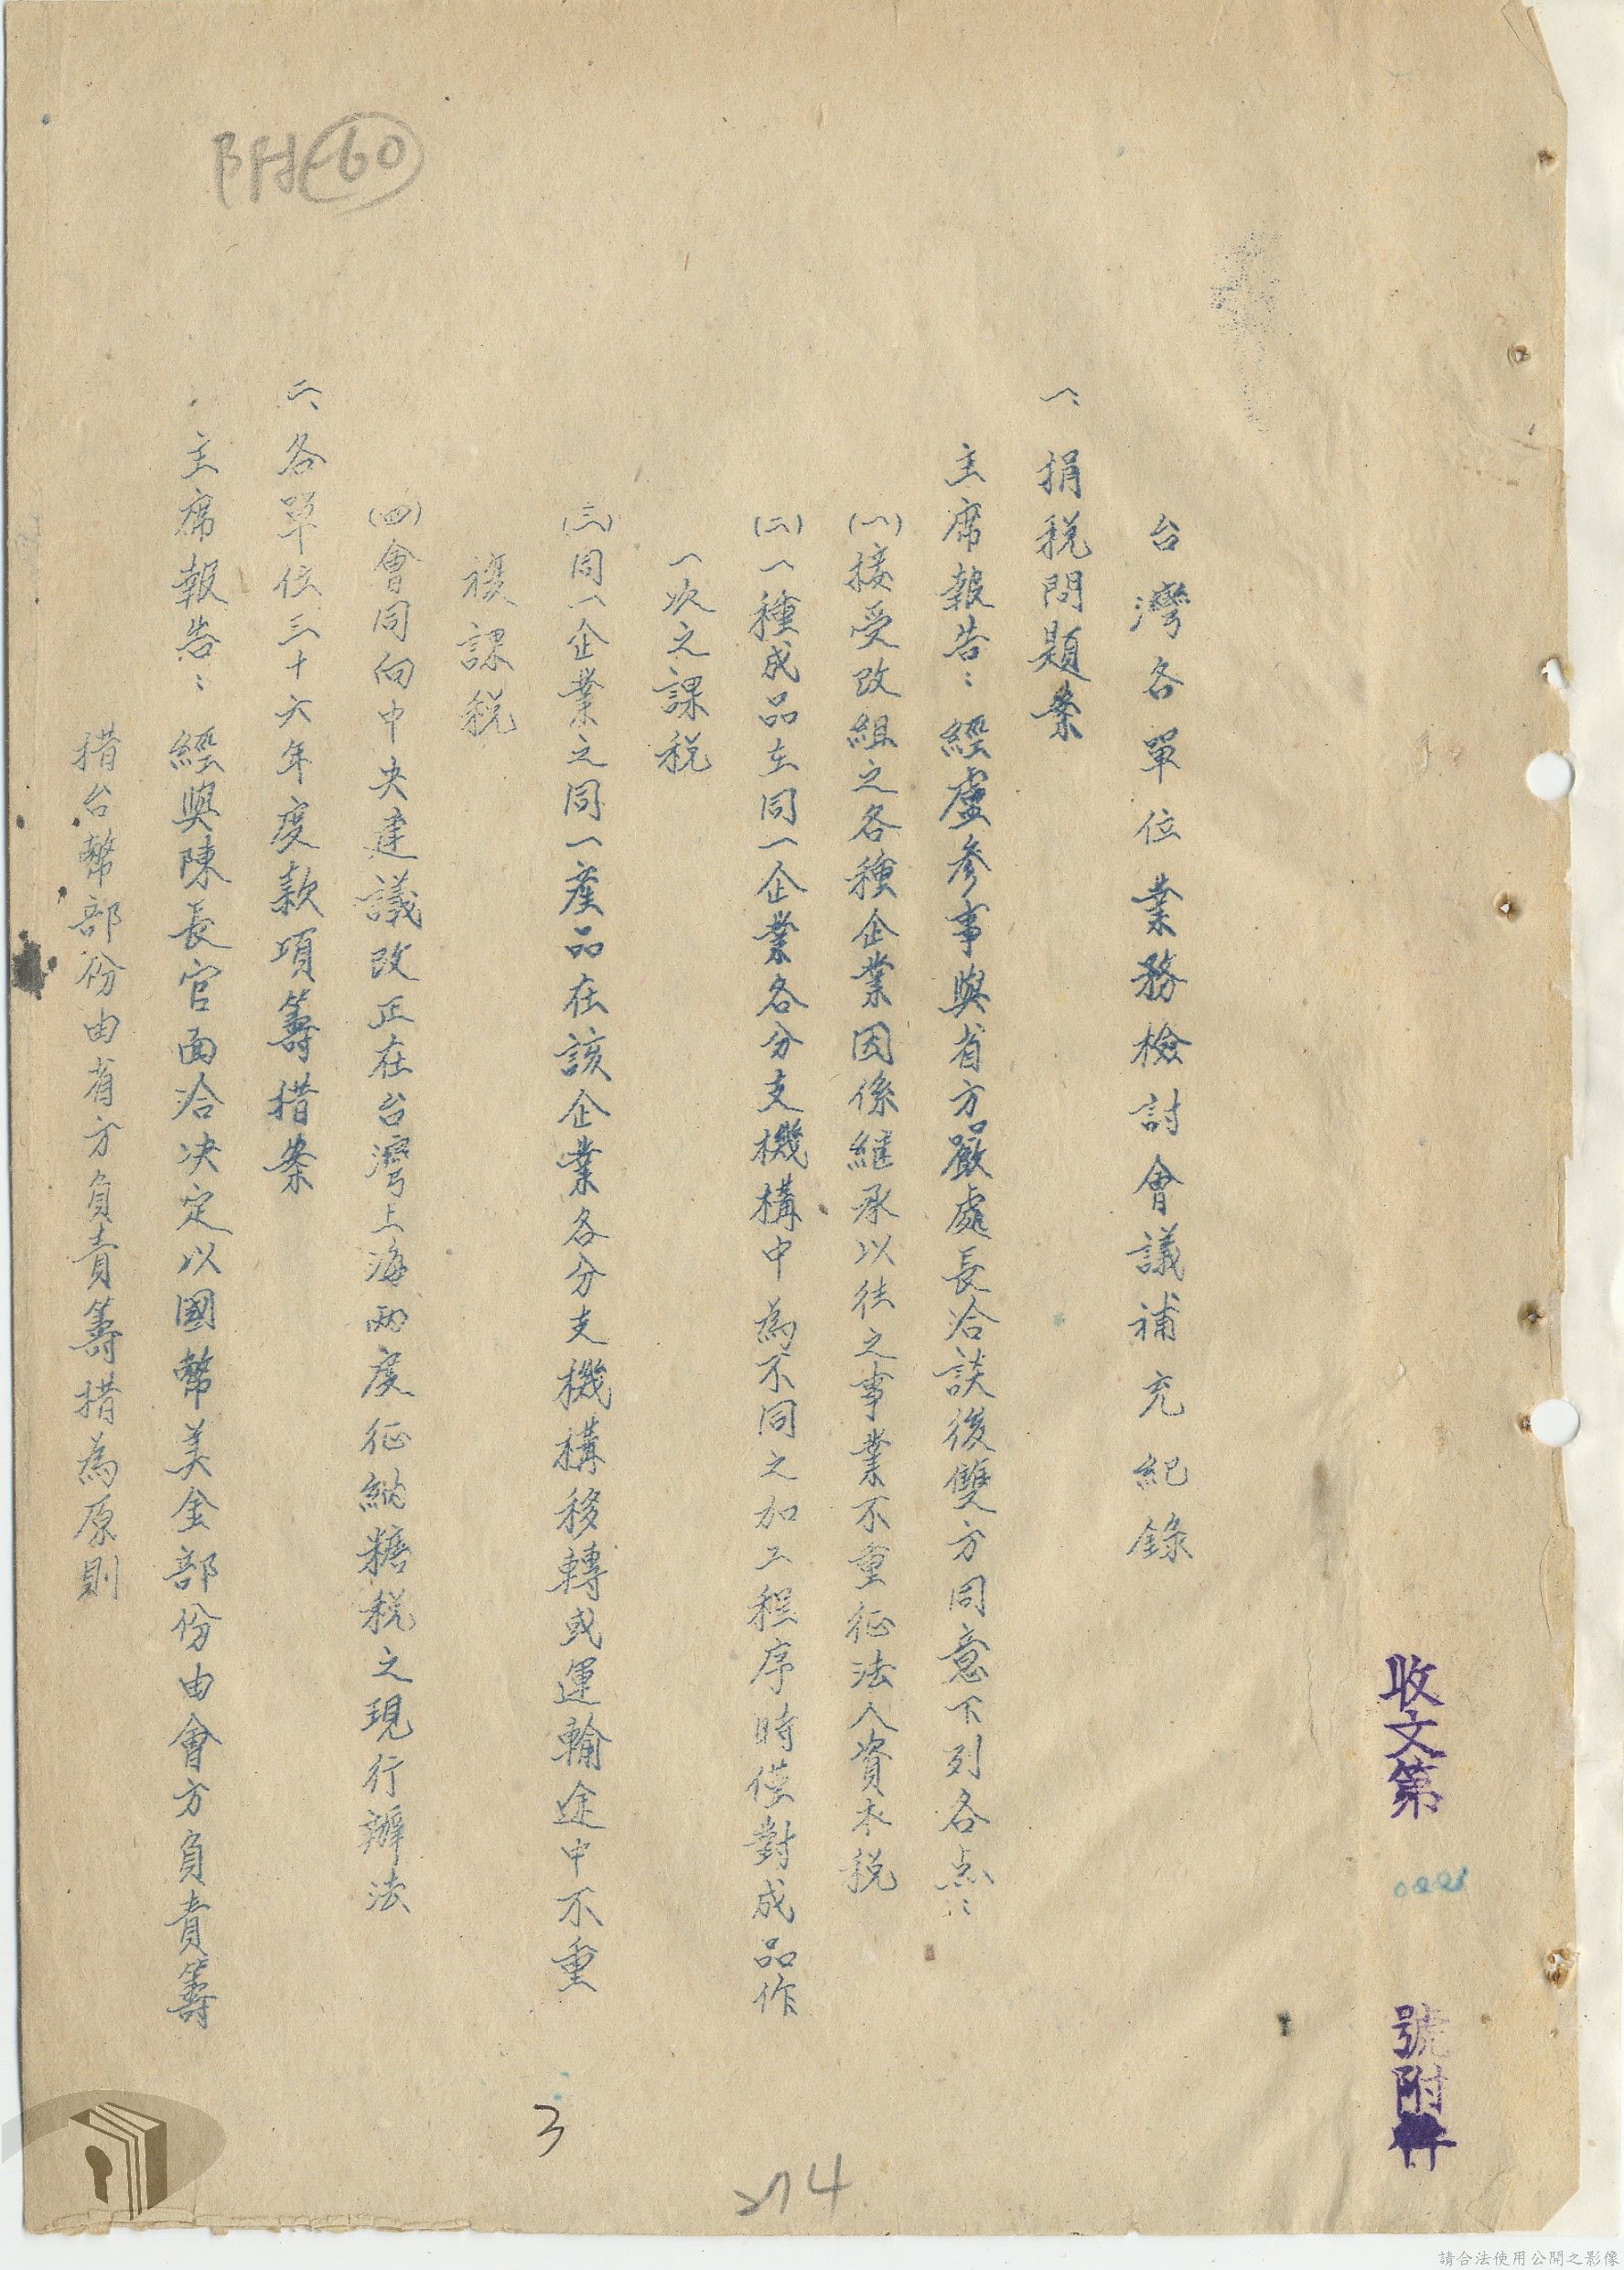 收文第 0221 號附件
台灣各單位業務檢討會議補充紀錄
一、捐稅問題案
主席報告：經盧參事與省方嚴處長洽談後雙方同意下列各点：
(一)接受改組之各種企業因係継承以往之事業不重征法人資本稅
(二)一種成品在同一企業各分支機構中為不同之加工程序時僅對成品作
一次之課稅
(三)同一企業之同一產品在該企業各分支機構移轉或運輸途中不重
複課稅
(四)會同向中央建議改正在台灣上海兩度征納糖稅之現行辦法
二、各單位三十六年度款項籌措案
主席報告：經與陳長官面洽决定以國幣美金部份由會方負責籌
措台幣部份由省方負責籌措為原則
附-60
3
274
請合法使用公開之影像